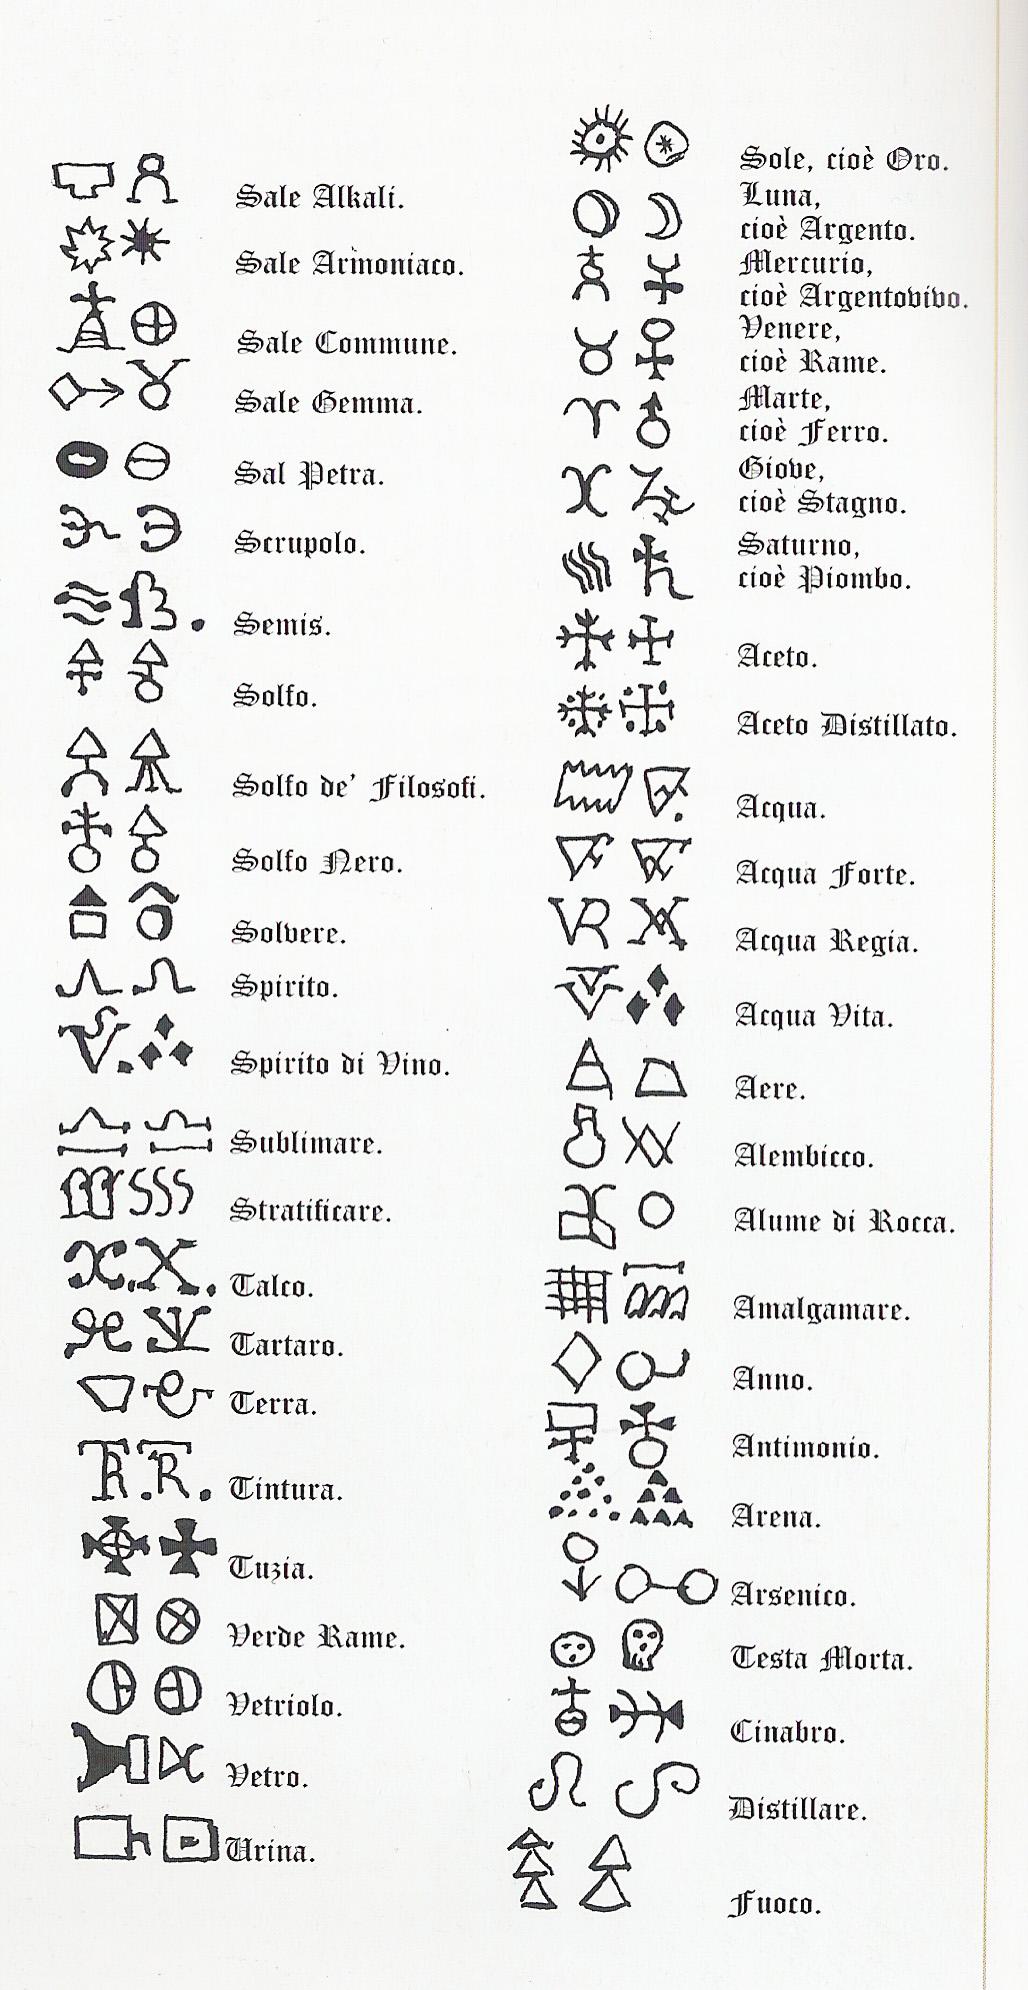 Sale Alkali.
Sale Armoniaco.
Sale Commune.
Sale Gemma.
Sal Petra.
Scrupolo.
Semis.
Solfo.
Solfo de' Filosofi.
Solfo Nero.
Solvere.
Spirito.
Spirito di Vino.
Sublimare.
Stratificare.
Talco.
Tartaro.
Terra.
Tintura.
Tuzia.
Verde Rame.
Vetriolo.
Vetro.
Urina.
Sole, cioè Oro.
Luna,
cioè Argento.
Mercurio,
cioè Argentovivo.
Venere,
cioè Rame.
Marte,
cioè Ferro.
Giove,
cioè Stagno.
Saturno,
cioè Piombo.
Aceto.
Aceto Distillato.
Acqua.
Acqua Forte.
Acqua Regia.
Acqua Vita.
Aere.
Alembicco.
Alume di Rocca.
Amalgamare.
Anno.
Antimonio.
Arena.
Arsenico.
Testa Morta.
Cinabro.
Distillare.
Fuoco.